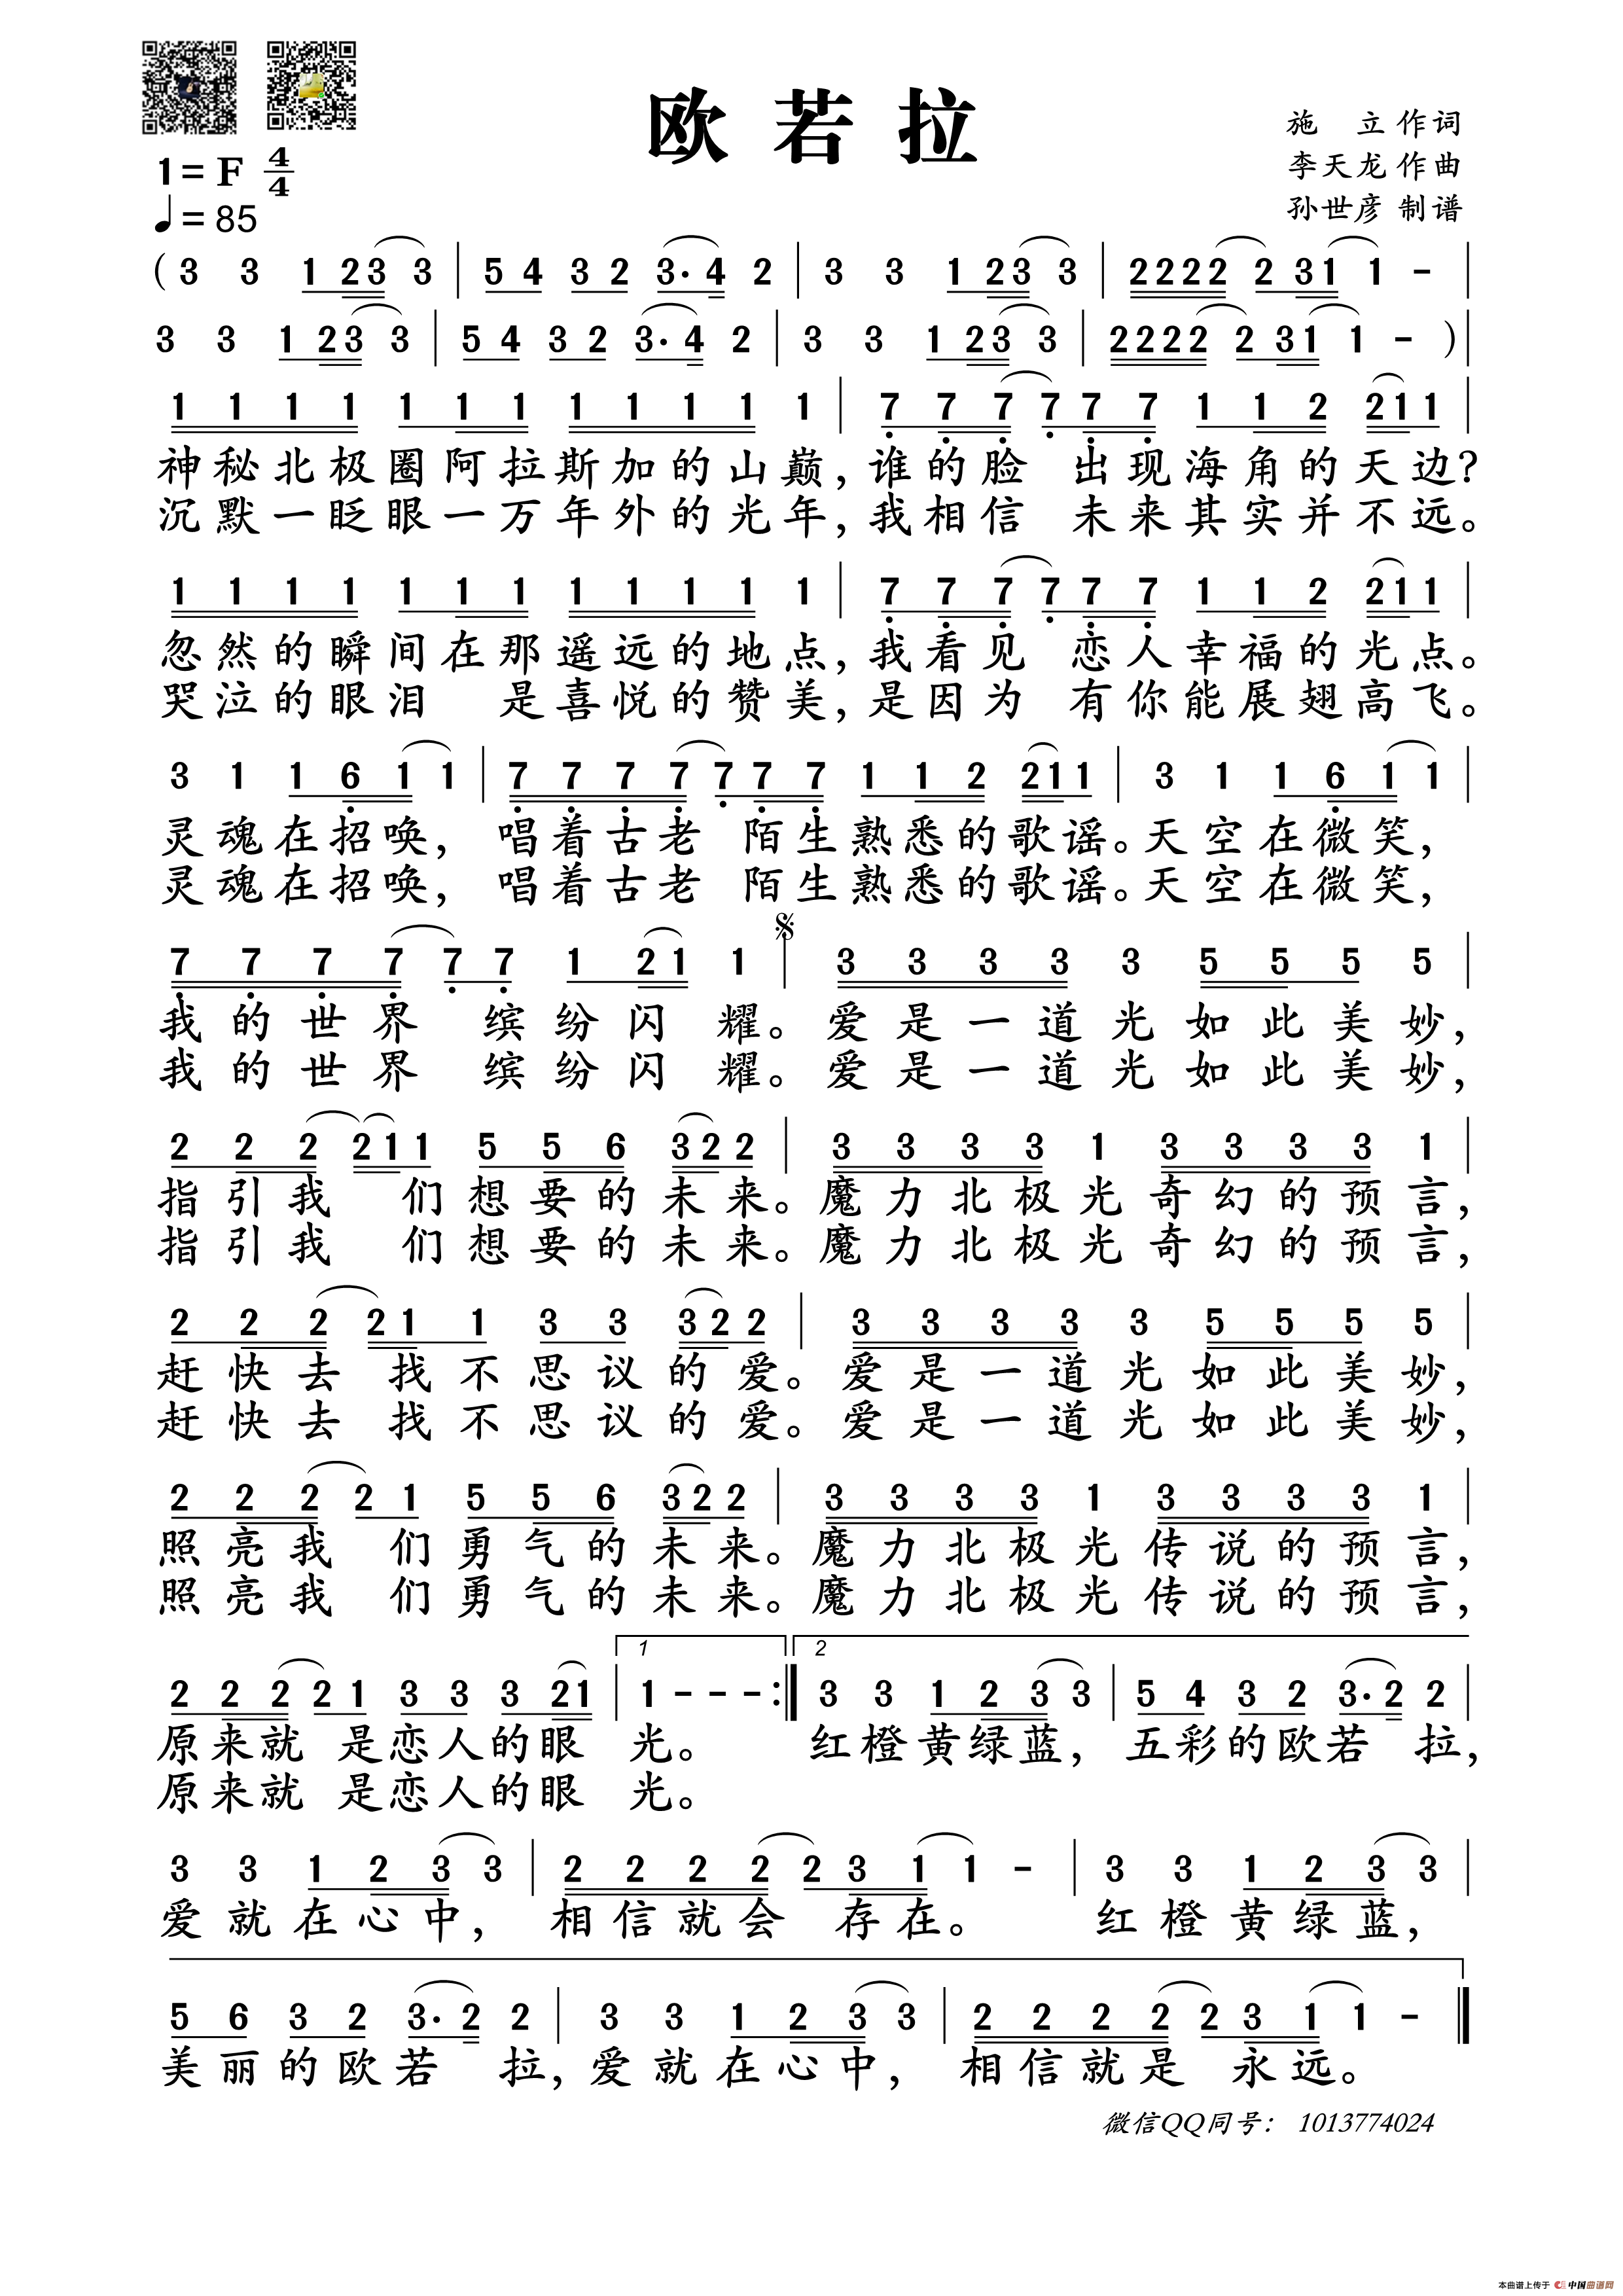 欧若拉
施 立 作词
李天龙 作曲
孙世彦 制谱
1= F 4/4
♩= 85
( 3 3 1 2 3 3 | 5 4 3 2 3· 4 2 | 3 3 1 2 3 3 | 2 2 2 2 2 3 1 1 - |
3 3 1 2 3 3 | 5 4 3 2 3· 4 2 | 3 3 1 2 3 3 | 2 2 2 2 2 3 1 1 - ) |
1 1 1 1 1 1 1 1 1 1 1 1 | 7 7 7 7 7 7 1 1 2 2 1 1 |
神秘北极圈阿拉斯加的山巅，谁的脸 出现海角的天边？
沉默一眨眼一万年外的光年，我相信 未来其实并不远。
1 1 1 1 1 1 1 1 1 1 1 1 | 7 7 7 7 7 7 1 1 2 2 1 1 |
忽然的瞬间在那遥远的地点，我看见 恋人幸福的光点。
哭泣的眼泪 是喜悦的赞美，是因为 有你能展翅高飞。
3 1 1 6 1 1 | 7 7 7 7 7 7 7 1 1 2 2 1 1 | 3 1 1 6 1 1 |
灵魂在招唤， 唱着古老 陌生熟悉的歌谣。天空在微笑，
灵魂在招唤， 唱着古老 陌生熟悉的歌谣。天空在微笑，
7 7 7 7 7 7 1 2 1 1 | 3 3 3 3 3 5 5 5 5 |
我的世界 缤纷闪 耀。爱是一道光如此美妙，
我的世界 缤纷闪 耀。爱是一道光如此美妙，
2 2 2 2 1 1 5 5 6 3 2 2 | 3 3 3 3 1 3 3 3 3 1 |
指引我 们想要的未来。魔力北极光奇幻的预言，
指引我 们想要的未来。魔力北极光奇幻的预言，
2 2 2 2 1 1 3 3 3 2 2 | 3 3 3 3 3 5 5 5 5 |
赶快去 找不思议的爱。爱是一道光如此美妙，
赶快去 找不思议的爱。爱是一道光如此美妙，
2 2 2 2 1 5 5 6 3 2 2 | 3 3 3 3 1 3 3 3 3 1 |
照亮我 们勇气的未来。魔力北极光传说的预言，
照亮我 们勇气的未来。魔力北极光传说的预言，
1 2
2 2 2 2 1 3 3 3 2 1 | 1 - - - :| 3 3 1 2 3 3 | 5 4 3 2 3· 2 2 |
原来就 是恋人的眼 光。 红橙黄绿蓝，五彩的欧若 拉，
原来就 是恋人的眼 光。
3 3 1 2 3 3 | 2 2 2 2 2 3 1 1 - | 3 3 1 2 3 3 |
爱就在心中， 相信就会 存在。 红橙黄绿蓝，
5 6 3 2 3· 2 2 | 3 3 1 2 3 3 | 2 2 2 2 2 3 1 1 - ‖
美丽的欧若 拉，爱就在心中， 相信就是 永远。
微信QQ同号： 1013774024
本曲谱上传于 中国曲谱网